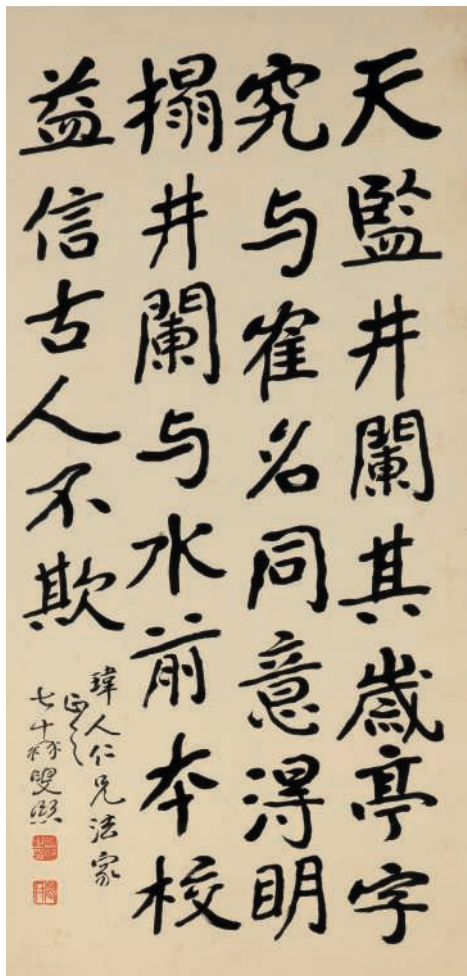 天監井闌其歲亭字
究与寉名同意淂明
搨井闌与水前本校
益信古人不欺
瑋人仁兄法家
正之
七十叟熙